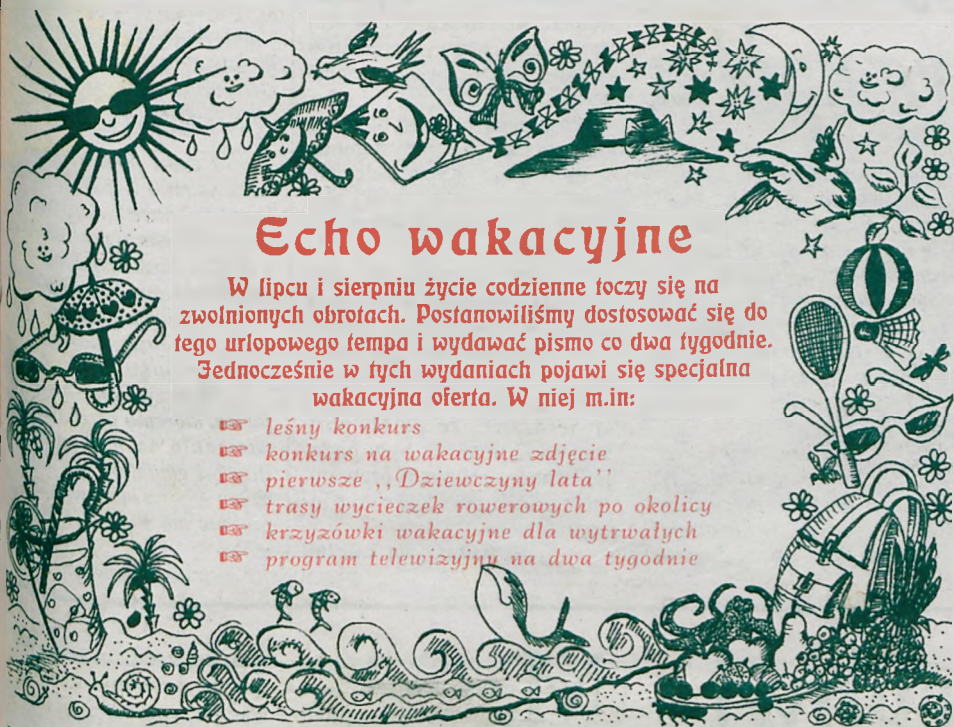 Echo wakacyjne
W lipcu i sierpniu życie codzienne toczy się na
zwolnionych obrotach. Postanowiliśmy dostosować się do
tego urlopowego tempa i wydawać pismo co dwa tygodnie.
Jednocześnie w tych wydaniach pojawi się specjalna
wakacyjna oferta. W niej m.in:
☞ leśny konkurs
☞ konkurs na wakacyjne zdjęcie
☞ pierwsze ,,Dziewczyny lata''
☞ trasy wycieczek rowerowych po okolicy
☞ krzyzówki wakacyjne dla wytrwałych
☞ program telewizyjny na dwa tygodnie